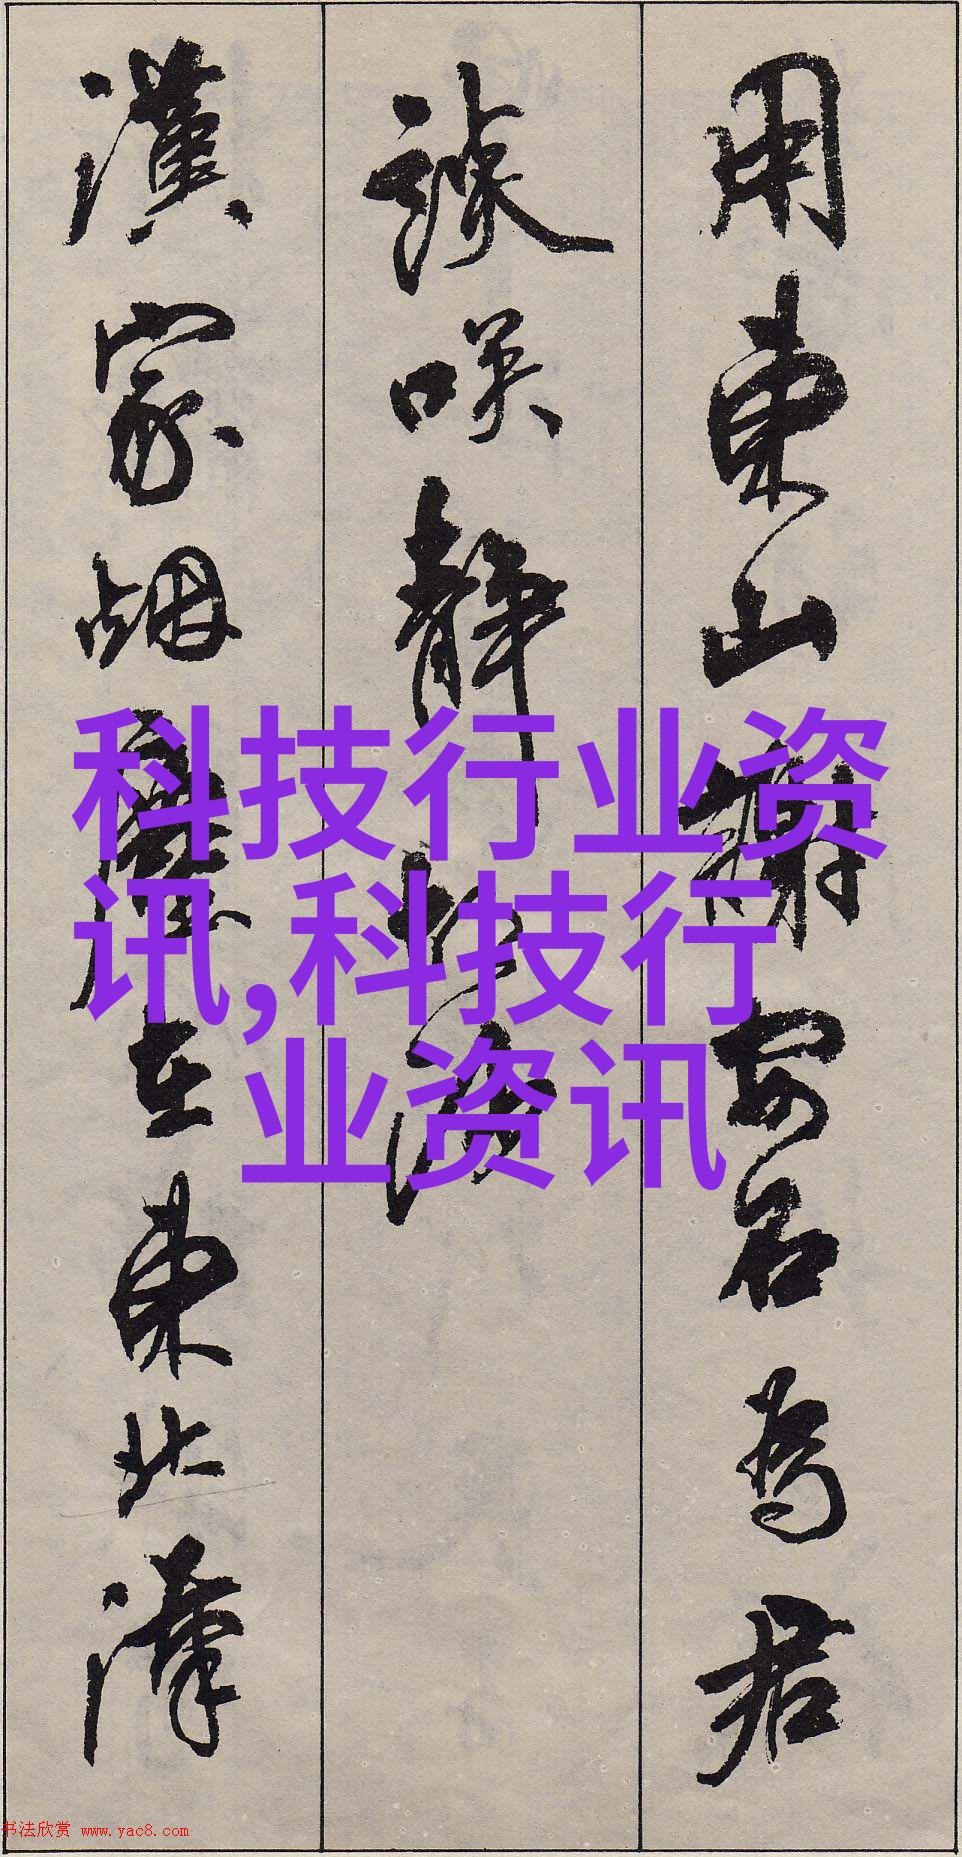 用東山謝安石為君
談咲靜胡沙
漢家烟塵在東北漢
科技行业资
讯,科技行
业资讯
书法欣赏 www.yac8.com